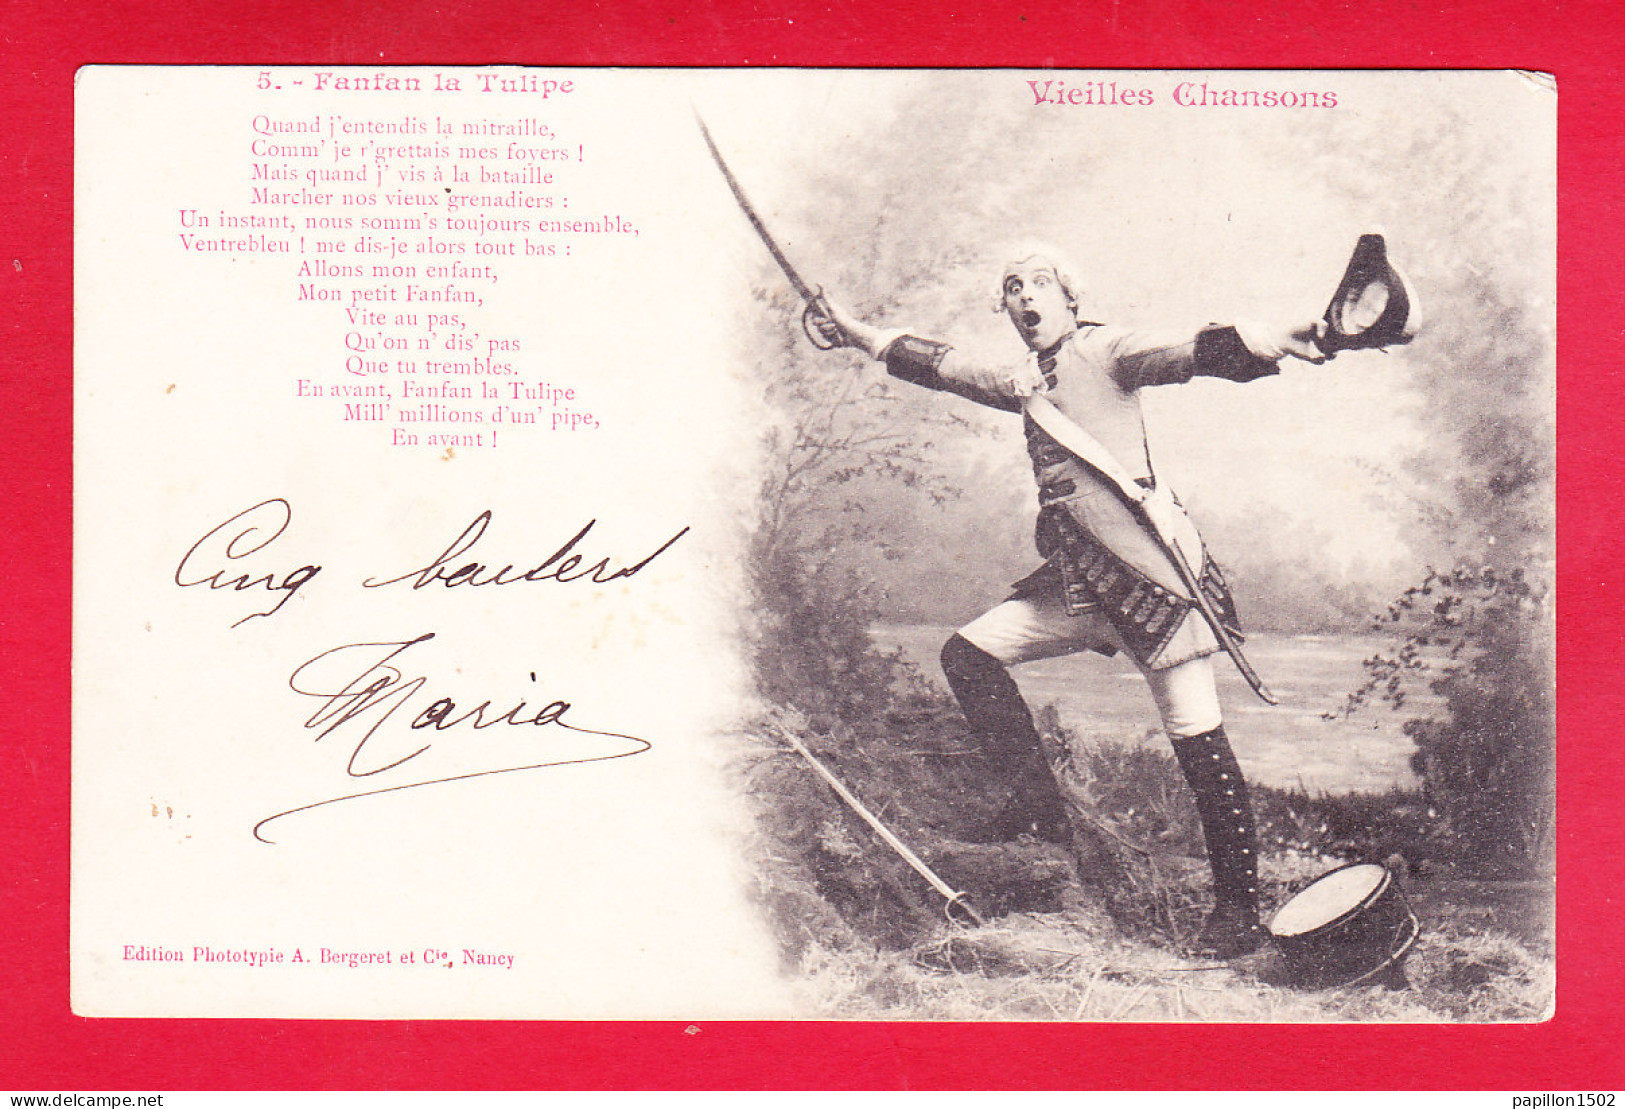 5. - Fanfan la Tulipe
Quand j'entendis la mitraille,
Comm' je r'grettais mes foyers !
Mais quand j' vis à la bataille
Marcher nos vieux grenadiers :
Un instant, nous somm's toujours ensemble,
Ventrebleu ! me dis-je alors tout bas :
Allons mon enfant,
Mon petit Fanfan,
Vite au pas,
Qu'on n' dis' pas
Que tu trembles.
En avant, Fanfan la Tulipe
Mill' millions d'un' pipe,
En avant !
Vieilles Chansons
Cinq baisers
Maria
Edition Phototypie A. Bergeret et Cie, Nancy
delcampe.net
papillon1502